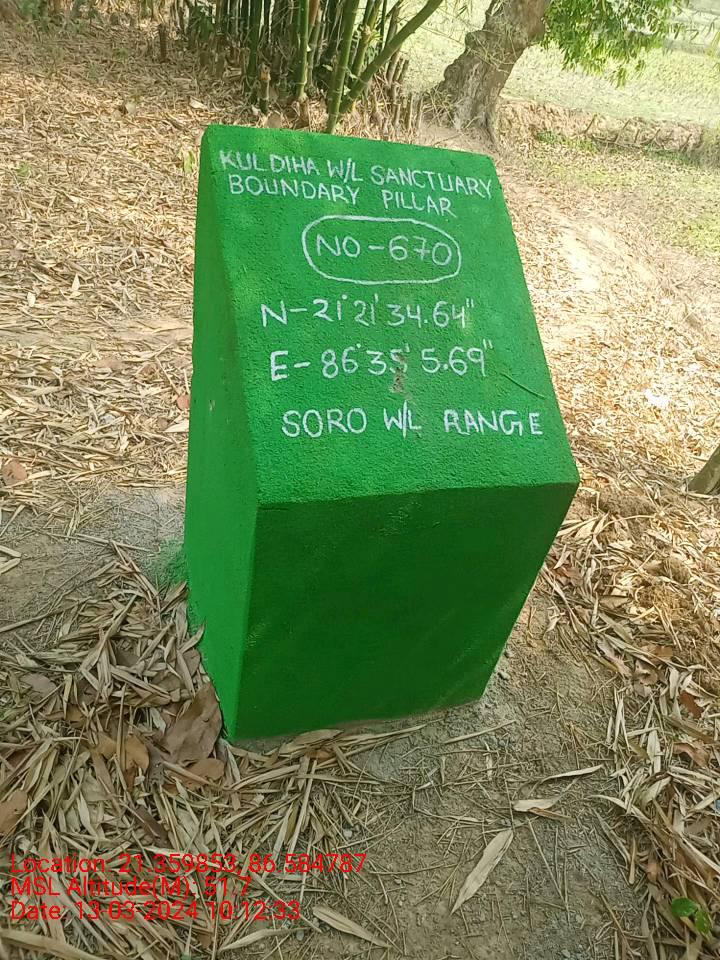 KULDIHA W/L SANCTUARY
BOUNDARY PILLAR
NO-670
N-21°21'34.64"
E-86°35'5.69"
SORO W/L RANGE
Location: 21.359853, 86.584787
MSL Altitude(M): 51.7
Date: 13-03-2024 10:12:33